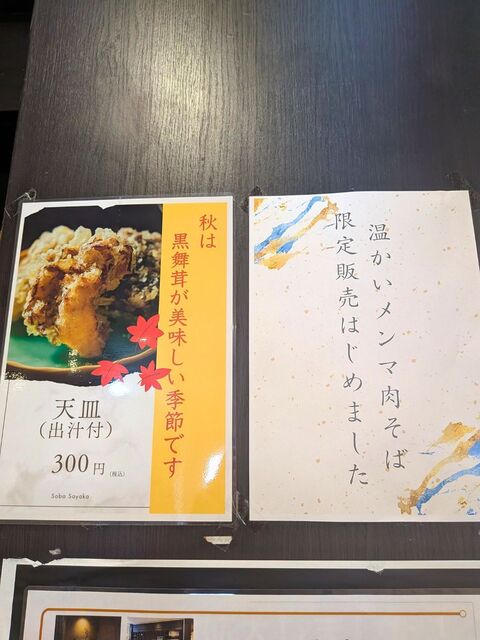 秋は
黒舞茸が美味しい季節です
天皿
(出汁付)
300円(税込)
Soba Sayaka
温かいメンマ肉そば
限定販売はじめました